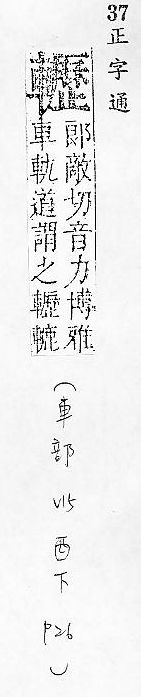 37正字通
轣
郎敵切音力博雅
車軌道謂之轣轆
(車部 V15 酉下 P26)